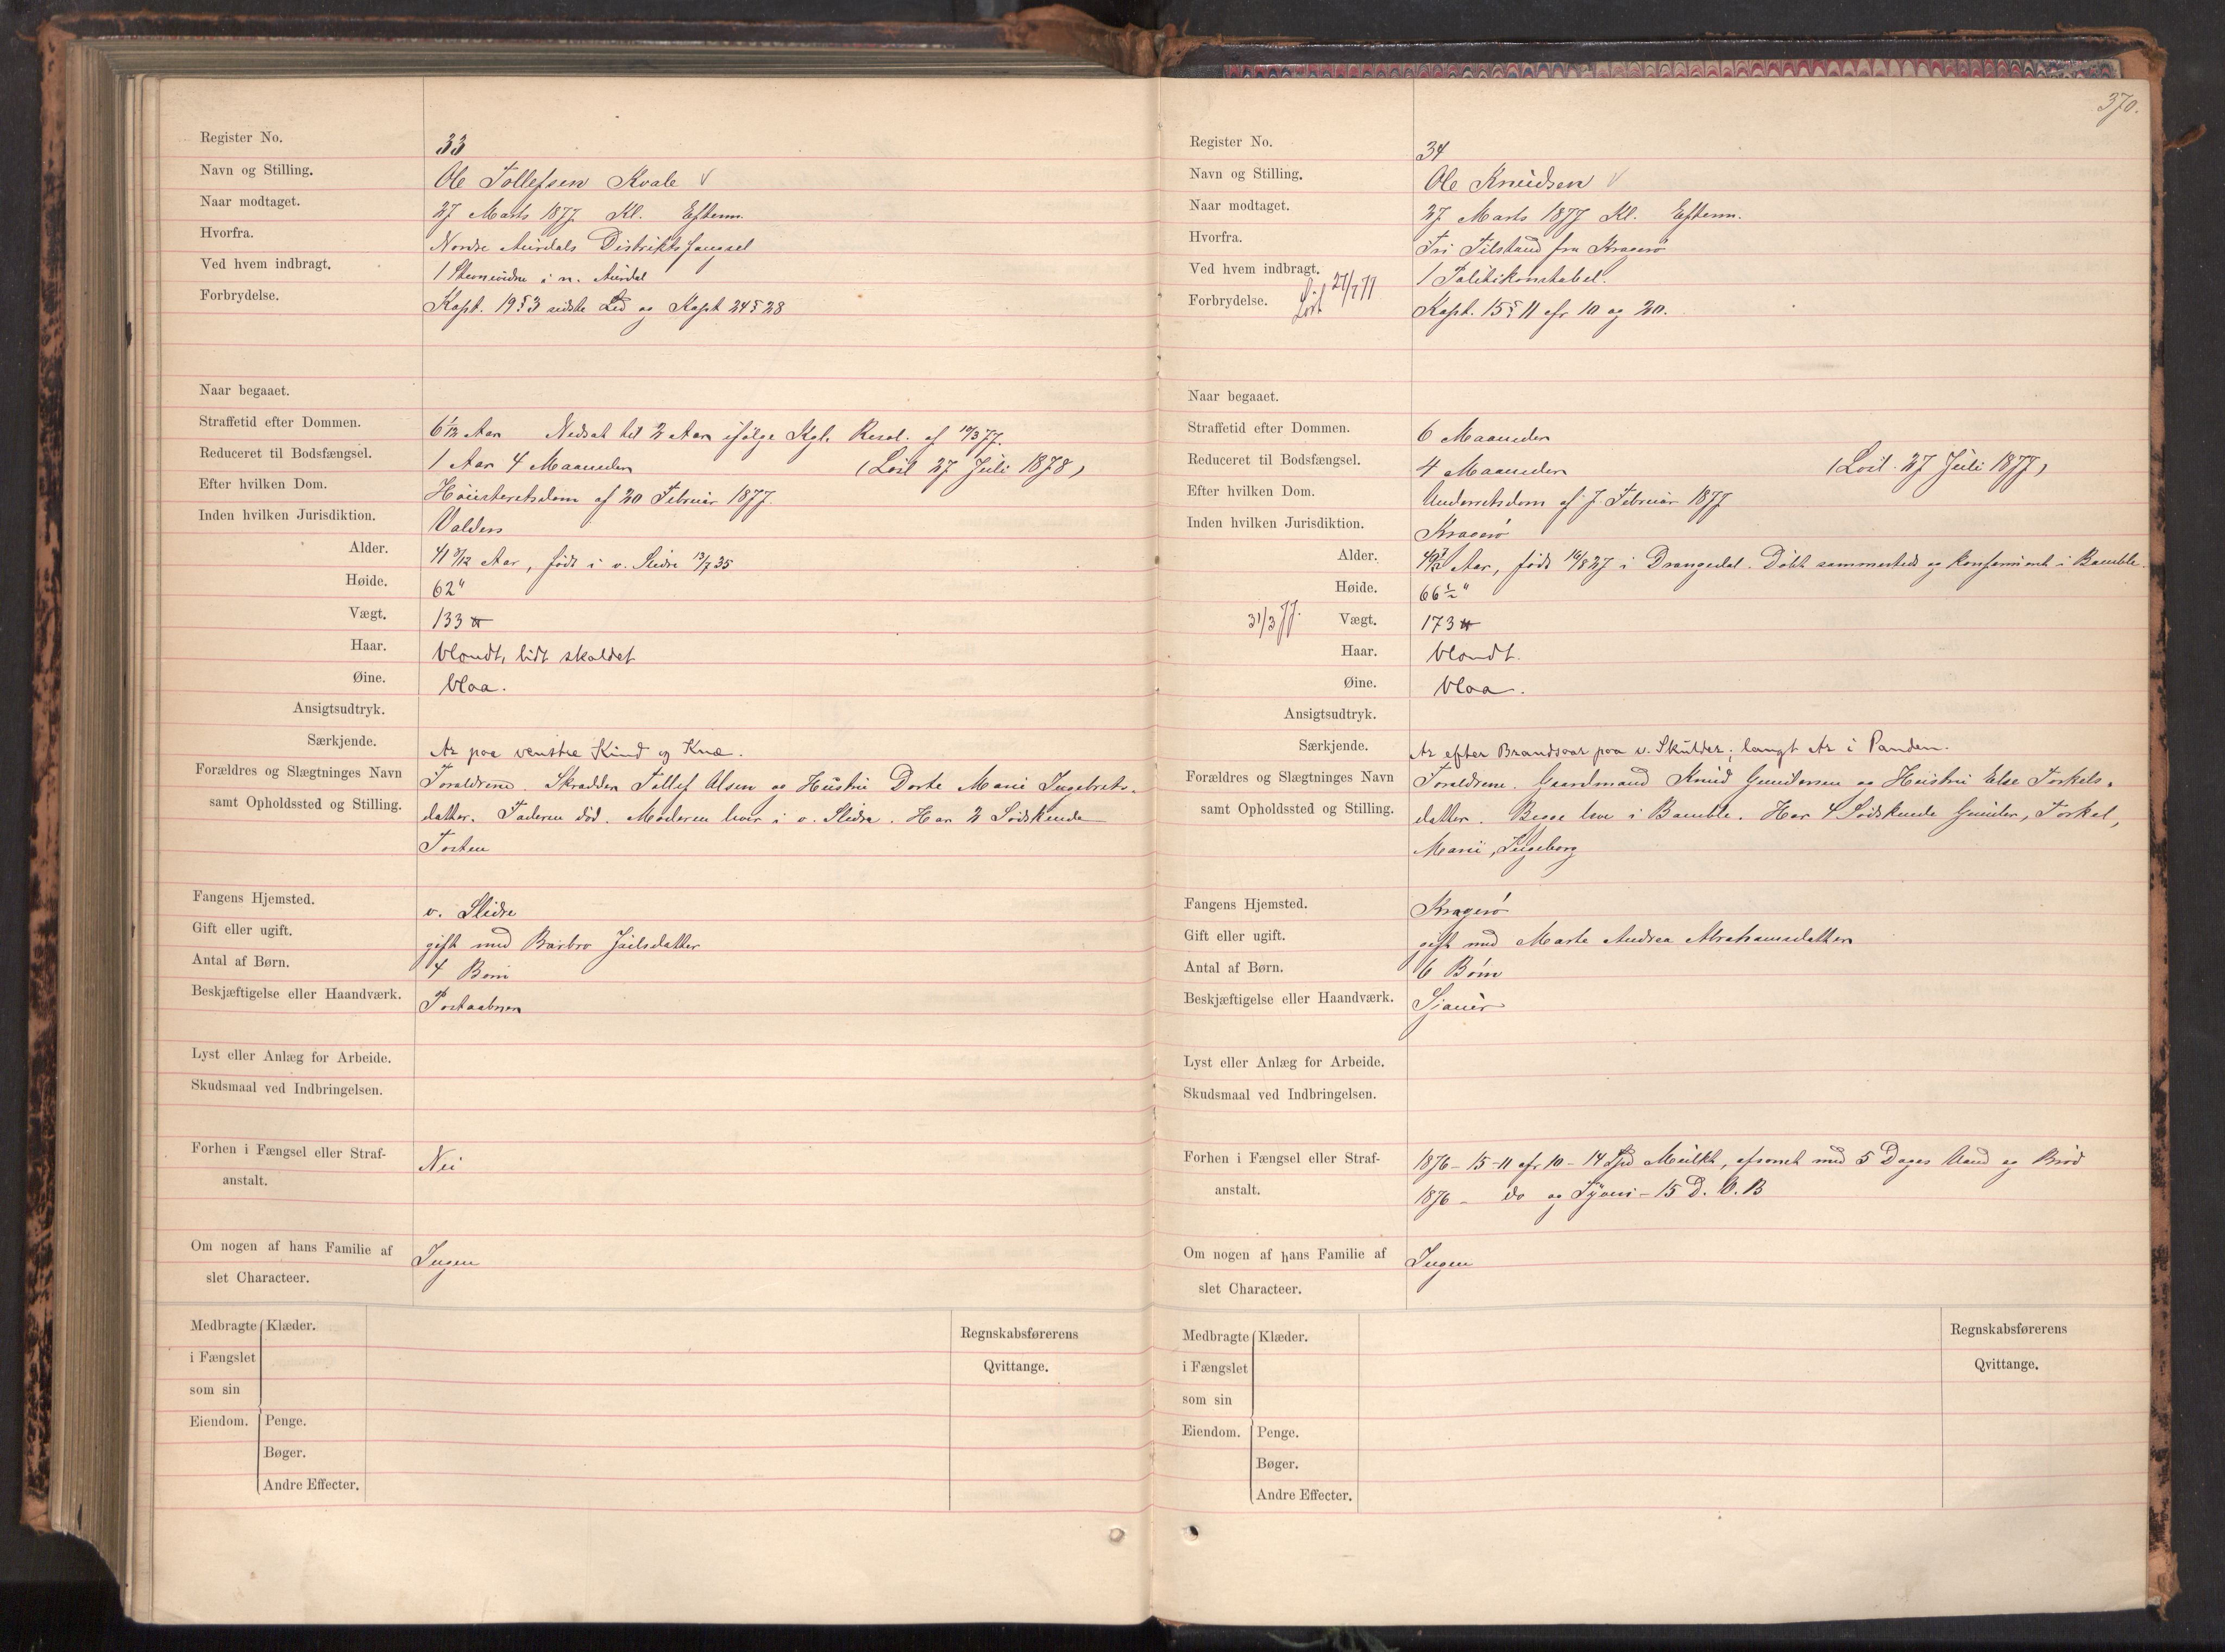 Register No. 33
Navn og Stilling. Ole Tollefsen Kvale √
Naar modtaget. 27 Marts 1877. Kl. Efterm.
Hvorfra. Nordre Aurdals Distriktsfængsel
Ved hvem indbragt. 1 Stevnevidne i n. Aurdal
Forbrydelse. Kapt. 19 § 3 sidste Led og Kapt 24 § 28
Naar begaaet.
Straffetid efter Dommen. 6 1/12 Aar Nedsat til 2 Aar ifølge Kgl. Resol. af 10/3 77.
Reduceret til Bodsfængsel. 1 Aar 4 Maaneder (Løsl. 27 Juli 1878)
Efter hvilken Dom. Høiesteretsdom af 20 Februar 1877.
Inden hvilken Jurisdiktion. Valders
Alder. 41 8/12 Aar, født i v. Slidre 13/7 35
Høide. 62"
Vægt. 133 ℔
Haar. blondt, lidt skaldet
Øine. blaa.
Ansigtsudtryk.
Særkjende. Ar paa venstre Kind og Knæ.
Forældres og Slægtninges Navn Forældrene. Skrædder Tollef Olsen og Hustru Dorte Marie Ingebrets-
samt Opholdssted og Stilling. datter. Faderen død. Moderen lever i v. Slidre. Har 2 Sødskende
Tosten
Fangens Hjemsted. v. Slidre
Gift eller ugift. gift med Barbro Juilsdatter
Antal af Børn. 4 Børn
Beskjæftigelse eller Haandværk. Postaabner
Lyst eller Anlæg for Arbeide.
Skudsmaal ved Indbringelsen.
Forhen i Fængsel eller Straf- Nei
anstalt.
Om nogen af hans Familie af Ingen
slet Characteer.
Medbragte Klæder. Regnskabsførerens
i Fængslet Qvittange.
som sin
Eiendom. Penge.
Bøger.
Andre Effecter.
370.
Register No. 34
Navn og Stilling. Ole Knudsen √
Naar modtaget. 27 Marts 1877 Kl. Efterm.
Hvorfra. Fri Tilstand fra Kragerø
Ved hvem indbragt. 1 Politikonstabel.
Forbrydelse. Løsl 27/7 77 Kapt. 15 § 11 cfr 10 og 20.
Naar begaaet.
Straffetid efter Dommen. 6 Maaneder
Reduceret til Bodsfængsel. 4 Maaneder (Løsl. 27 Juli 1877)
Efter hvilken Dom. Underretsdom af 7 Februar 1877
Inden hvilken Jurisdiktion. Kragerø
Alder. 49 7/12 Aar, født 16/8 27 i Drangedal. Døbt sammesteds og konfirmeret i Bamble.
Høide. 66 1/2"
31/3 77. Vægt. 173 ℔
Haar. blondt.
Øine. blaa.
Ansigtsudtryk.
Særkjende. Ar efter Brandsaar paa v. Skulder; langt Ar i Panden.
Forældres og Slægtninges Navn Forældrene. Gaardmand Knud Gundersen og Hustru Else Torkels-
samt Opholdssted og Stilling. datter. Begge leve i Bamble. Har 4 Sødskende Gunder, Torkel,
Marie, Ingeborg
Fangens Hjemsted. Kragerø
Gift eller ugift. gift med Marte Andrea Abrahamsdatter
Antal af Børn. 6 Børn
Beskjæftigelse eller Haandværk. Sjauer
Lyst eller Anlæg for Arbeide.
Skudsmaal ved Indbringelsen.
Forhen i Fængsel eller Straf- 1876 - 15-11 cfr 10 - 14 Spd Mulkt, afsonet med 5 Dages Vand og Brød
anstalt. 1876 - do og Tyveri - 15 D. V. B
Om nogen af hans Familie af Ingen
slet Characteer.
Medbragte Klæder. Regnskabsførerens
i Fængslet Qvittange.
som sin
Eiendom. Penge.
Bøger.
Andre Effecter.